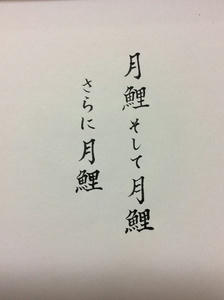 月鯉そして月鯉
さらに月鯉